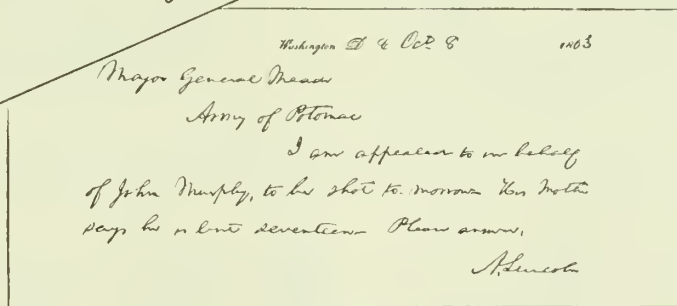 Washington D C Oct. 8 1863
Major General Meade
Army of Potomac
I am appealed to in behalf
of John Murphy, to be shot to-morrow. His Mother
says he is but seventeen. Please answer.
A. Lincoln